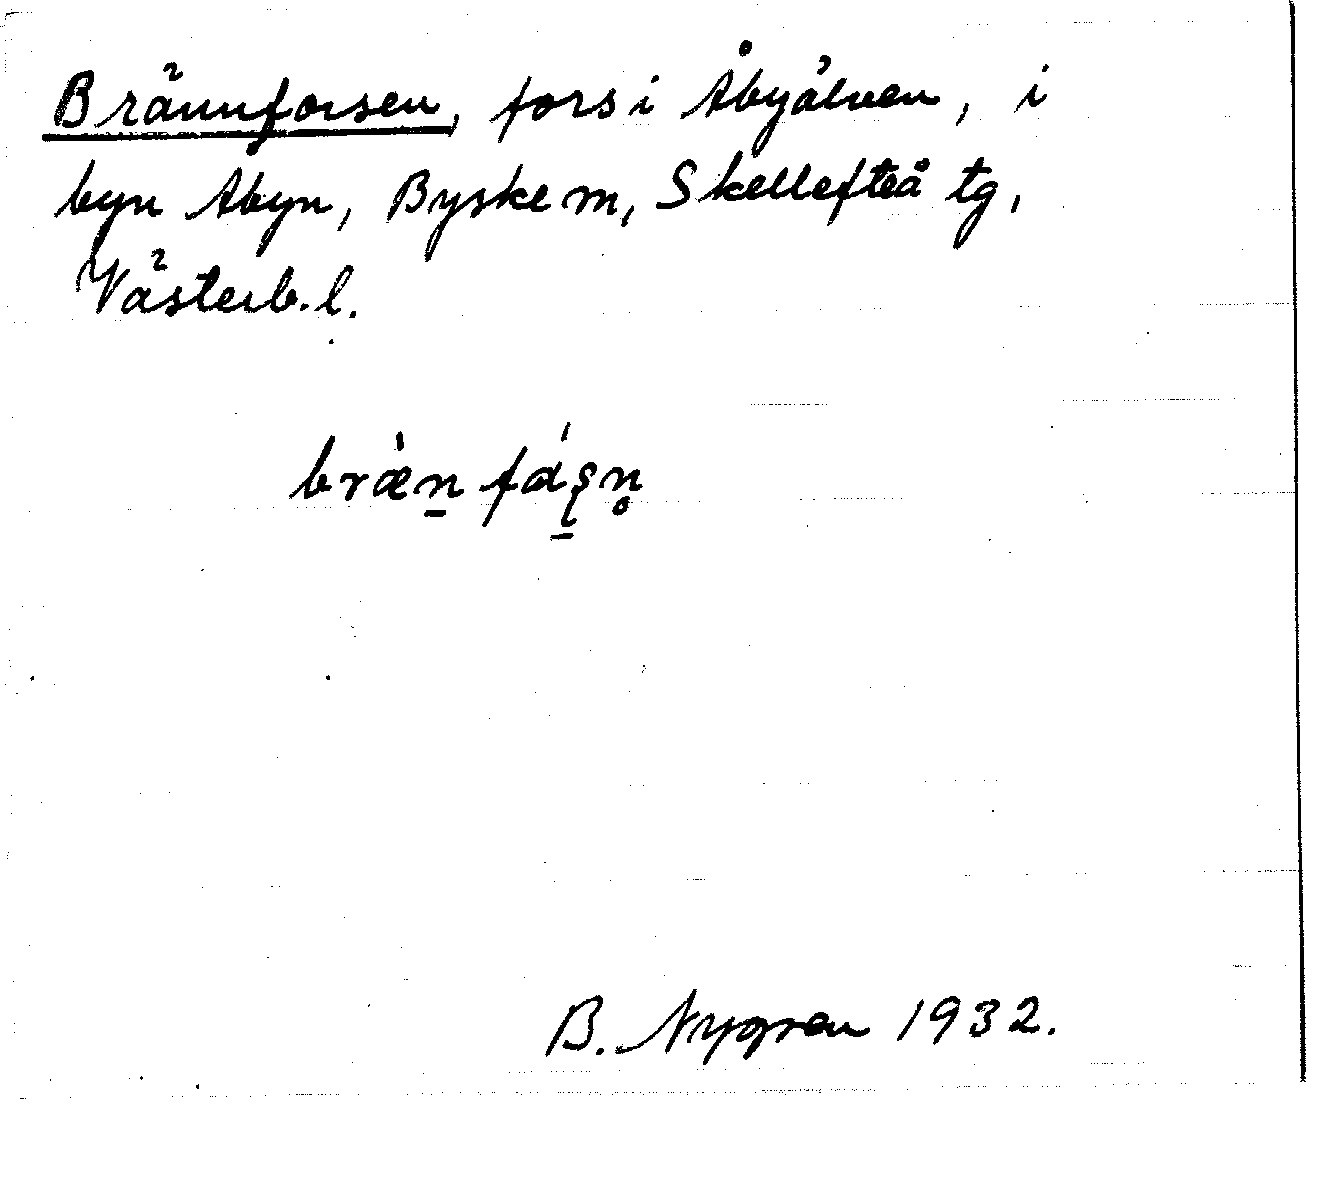 Brännforsen, fors i Åbyälven, i
byn Åbyn, Byske m, Skellefteå tg,
Västerb. l.
bræ̀n̲ fáʂ̲n̥
B. Nygren 1932.